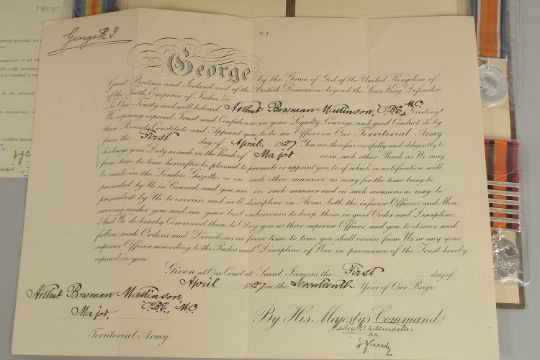 George R.I.
George by the Grace of God of the United Kingdom of
Great Britain and Ireland and of the British Dominions beyond the Seas King Defender
of the Faith, Emperor of India &c.
To Our Trusty and well beloved Arthur Bowman Matinson, C.B.E., M.C. Greeting!
We reposing especial Trust and Confidence in your Loyalty Courage, and good Conduct, do by
these Presents Constitute and Appoint you to be an Officer in Our Territorial Army
from the First day of April, 1927. You are therefore carefully and diligently to
discharge your Duty as such in the Rank of Major or in such other Rank as We may
from time to time hereafter be pleased to promote or appoint you to, of which a notification will
be made in the London Gazette, or in such other manner as may for the time being be
provided by Us in Council, and you are in such manner and on such occasions as may be
prescribed by Us to exercise and well discipline in Arms both the inferior Officers and Men
serving under you and use your best endeavours to keep them in good Order and Discipline.
And We do hereby Command them to Obey you as their superior Officer and you to observe and
follow such Orders and Directions as from time to time you shall receive from Us or any your
superior Officer, according to the Rules and Discipline of War, in pursuance of the Trust hereby
reposed in you.
Given at Our Court at Saint James's the First day of
April 1927, in the Seventeenth Year of Our Reign
Arthur Bowman Matinson,
C.B.E., M.C.
Major.
Territorial Army.
By His Majesty's Command